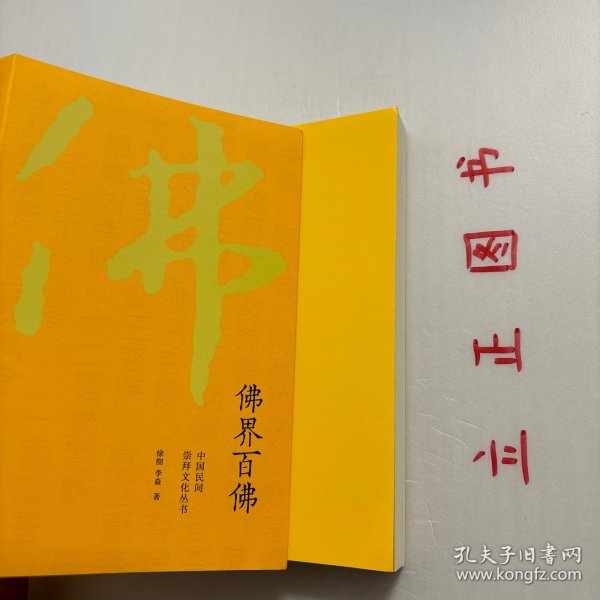 佛
佛界百佛
中国民间
崇拜文化丛书
徐彻 李焱 著
书图正
孔夫子旧书网
www.kongfz.com